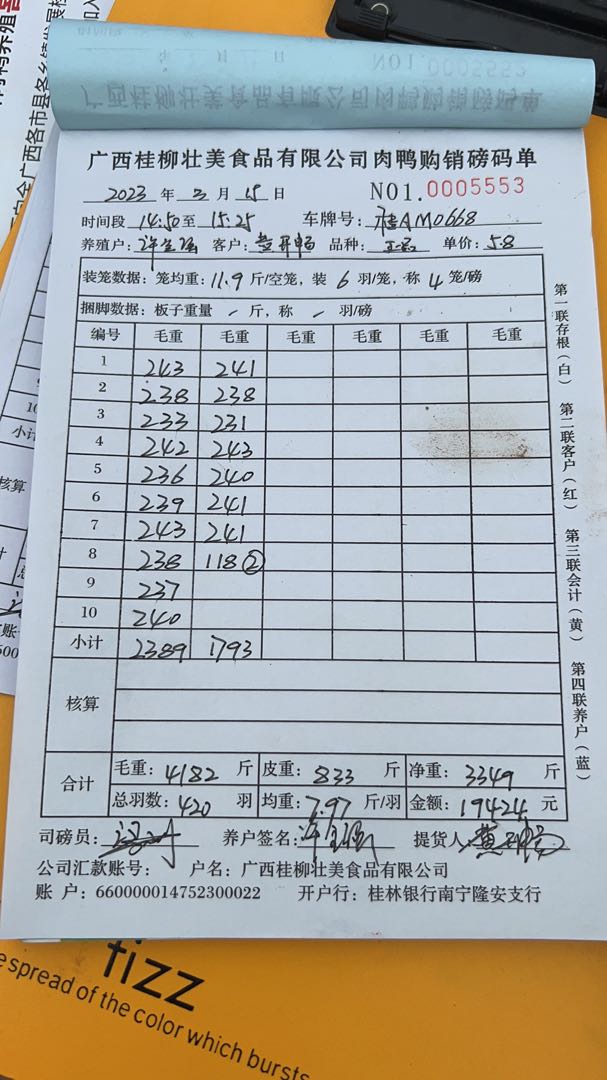 NO1.0005552
广西桂柳壮美食品有限公司肉鸭购销磅码单
广西桂柳壮美食品有限公司肉鸭购销磅码单
2023 年 3 月 15 日 NO1.0005553
时间段 14:50 至 15:25 车牌号: 桂AM0668
养殖户: 客户: 黄开畅 品种: 单价: 5.8
装笼数据: 笼均重: 11.9 斤/空笼, 装 6 羽/笼, 称 4 笼/磅
捆脚数据: 板子重量 - 斤, 称 - 羽/磅
编号 毛重 毛重 毛重 毛重 毛重 毛重
1 243 241
2 238 238
3 233 231
4 242 243
5 236 240
6 239 241
7 243 241
8 238 118②
9 237
10 240
小计 2389 1793
核算
合计 毛重: 4182 斤 皮重: 833 斤 净重: 3349 斤
总羽数: 420 羽 均重: 7.97 斤/羽 金额: 19424 元
司磅员: 养户签名: 提货人:
公司汇款账号: 户名: 广西桂柳壮美食品有限公司
账 户: 660000014752300022 开户行: 桂林银行南宁隆安支行
第一联存根(白) 第二联客户(红) 第三联会计(黄) 第四联养户(蓝)
fizz
e spread of the color which bursts